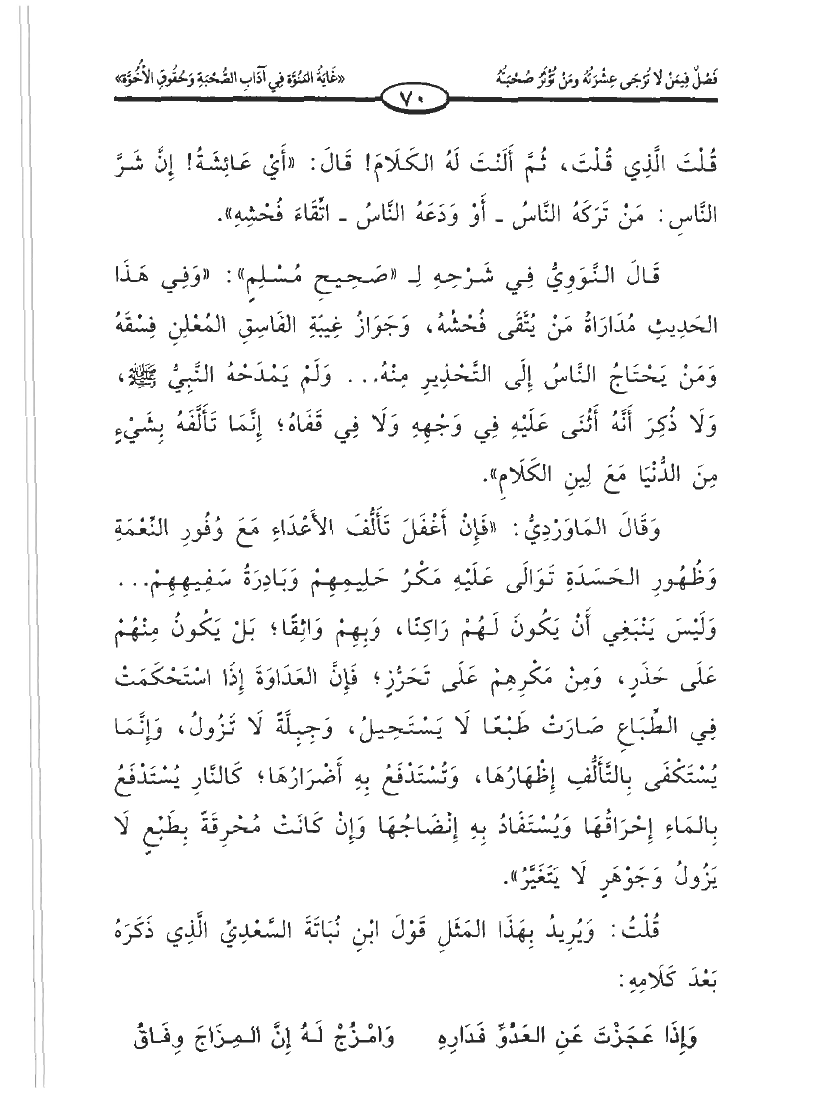 فَصْلٌ فِيمَنْ لَا تُرْجَى عِشْرَتُهُ ومَنْ تُؤْثَرُ صُحْبَتُهُ
«غَايَةُ المُنُوَّة فِي آدَابِ الصُّحْبَةِ وَحُقُوقِ الْأُخُوَّة»
٧٠
قُلْتَ الَّذِي قُلْتَ، ثُمَّ أَلَنْتَ لَهُ الكَلَامَ! قَالَ: «أَيْ عَائِشَةُ! إِنَّ شَرَّ
النَّاسِ: مَنْ تَرَكَهُ النَّاسُ ـ أَوْ وَدَعَهُ النَّاسُ ـ اتِّقَاءَ فُحْشِهِ».
قَالَ النَّوَوِيُّ فِي شَرْحِهِ لِـ «صَحِيحِ مُسْلِمٍ»: «وَفِي هَذَا
الحَدِيثِ مُدَارَاةُ مَنْ يُتَّقَى فُحْشُهُ، وَجَوَازُ غِيبَةِ الفَاسِقِ المُعْلِنِ فِسْقَهُ
وَمَنْ يَحْتَاجُ النَّاسُ إِلَى التَّحْذِيرِ مِنْهُ... وَلَمْ يَمْدَحْهُ النَّبِيُّ ﷺ،
وَلَا ذُكِرَ أَنَّهُ أَثْنَى عَلَيْهِ فِي وَجْهِهِ وَلَا فِي قَفَاهُ؛ إِنَّمَا تَأَلَّفَهُ بِشَيْءٍ
مِنَ الدُّنْيَا مَعَ لِينِ الكَلَامِ».
وَقَالَ المَاوَرْدِيُّ: «فَإِنْ أَغْفَلَ تَأَلُّفَ الأَعْدَاءِ مَعَ وُفُورِ النِّعْمَةِ
وَظُهُورِ الحَسَدَةِ تَوَالَى عَلَيْهِ مَكْرُ حَلِيمِهِمْ وَبَادِرَةُ سَفِيهِهِمْ...
وَلَيْسَ يَنْبَغِي أَنْ يَكُونَ لَهُمْ رَاكِنًا، وَبِهِمْ وَاثِقًا؛ بَلْ يَكُونُ مِنْهُمْ
عَلَى حَذَرٍ، وَمِنْ مَكْرِهِمْ عَلَى تَحَرُّزٍ؛ فَإِنَّ العَدَاوَةَ إِذَا اسْتَحْكَمَتْ
فِي الطِّبَاعِ صَارَتْ طَبْعًا لَا يَسْتَحِيلُ، وَجِبِلَّةً لَا تَزُولُ، وَإِنَّمَا
يُسْتَكْفَى بِالتَّأَلُّفِ إِظْهَارُهَا، وَتُسْتَدْفَعُ بِهِ أَضْرَارُهَا؛ كَالنَّارِ يُسْتَدْفَعُ
بِالمَاءِ إِحْرَاقُهَا وَيُسْتَفَادُ بِهِ إِنْضَاجُهَا وَإِنْ كَانَتْ مُحْرِقَةً بِطَبْعٍ لَا
يَزُولُ وَجَوْهَرٍ لَا يَتَغَيَّرُ».
قُلْتُ: وَيُرِيدُ بِهَذَا المَثَلِ قَوْلَ ابْنِ نُبَاتَةَ السَّعْدِيِّ الَّذِي ذَكَرَهُ
بَعْدَ كَلَامِهِ:
وَإِذَا عَجَزْتَ عَنِ العَدُوِّ فَدَارِهِ وَامْزُجْ لَهُ إِنَّ المِزَاجَ وِفَاقُ